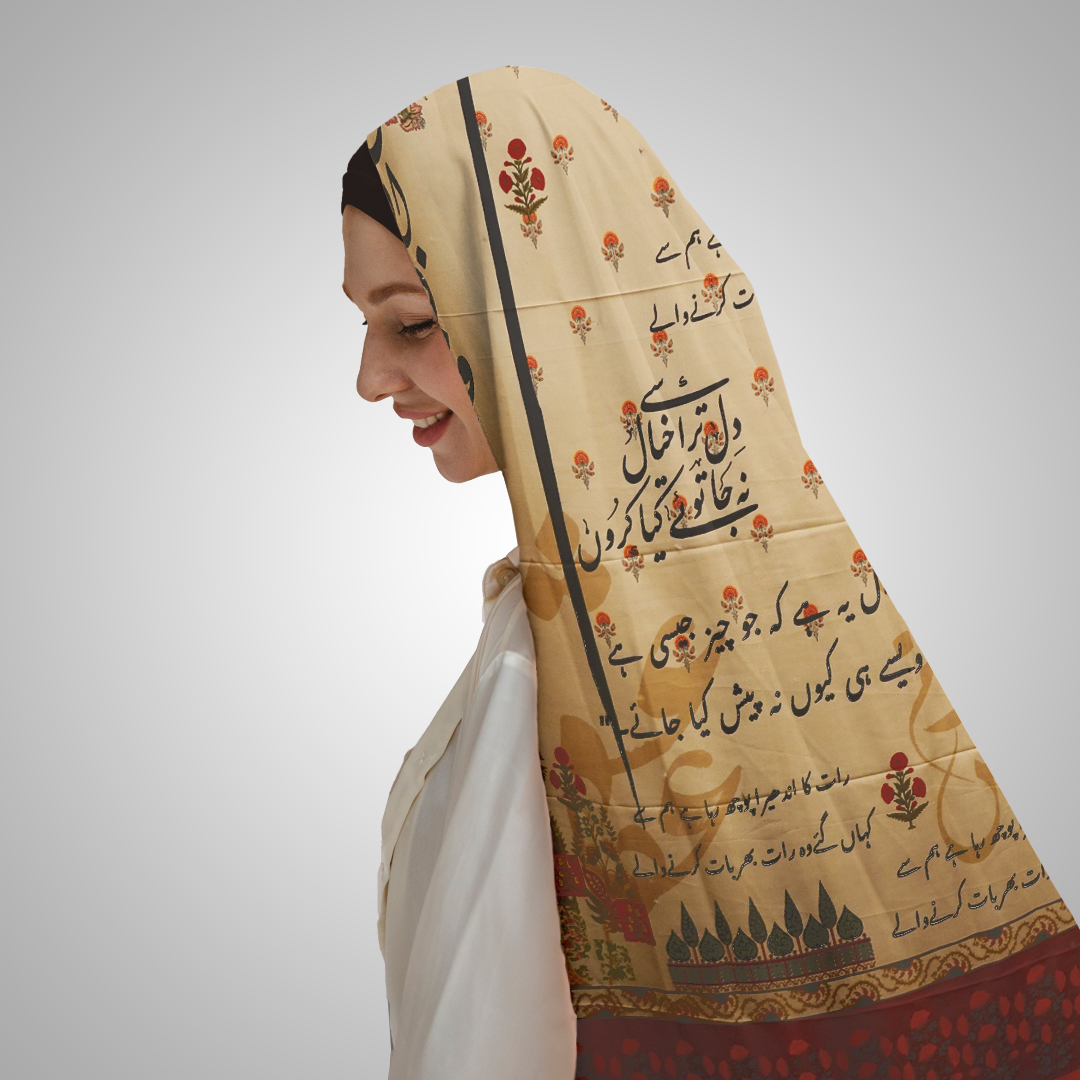 ہے ہم سے
رات کرنے والے
دل ترا خیال سے
نہ جائے تو کیا کروں
یہ ہے کہ جو چیز جیسی ہے
ویسے ہی کیوں نہ پیش کیا جائے۔"
رات کا اندھیرا پوچھ رہا ہے ہم سے
کہاں گئے وہ رات بھر بات کرنے والے
پوچھ رہا ہے ہم سے
رات بھر بات کرنے والے